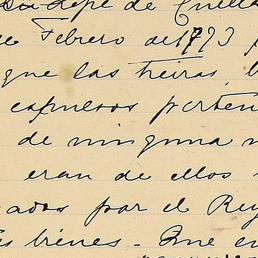 Lope de Cuella
e Febrero de 1793
que las tierras,
expulsos perten
de ninguna
eran de ellos
ados por el Rey
s bienes - Que en